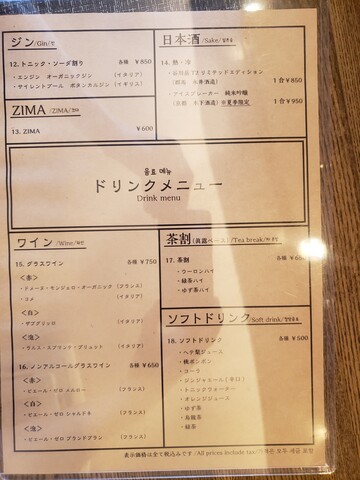 ジン/Gin/진
12. トニック・ソーダ割り 各種 ¥850
・エンジン オーガニックジン (イタリア)
・サイレントプール ボタニカルジン (イギリス)
ZIMA /ZIMA/
13. ZIMA ¥600
日本酒/Sake/
14. 熱・冷
エディション
1合¥850
・アイスブレーカー 純米吟醸
(京都 木下酒造) ※夏季限定 1合¥950
음료 메뉴
ドリンクメニュー
Drink menu
ワイン/Wine/와인
15. グラスワイン 各種 ¥750
<赤>
・ドメーヌ・モンジェロ・オーガニック (フランス)
(イタリア)
<白>
(イタリア)
<泡>
(イタリア)
16. ノンアルコールグラスワイン 各種 ¥650
<赤>
・ピエール・ゼロ メルロー (フランス)
<白>
・ピエール・ゼロ シャルドネ (フランス)
<泡>
・ピエール・ゼロ ブランドブラン (フランス)
茶割(眞露ベース)/Tea break/
17. 茶割 各種
・ウーロンハイ
・緑茶ハイ
・ゆず茶ハイ
ソフトドリンク/Soft drink/
18. ソフトドリンク 各種 ¥500
・ヘテ梨ジュース
・桃ポンポン
・コーラ
・ジンジャエール(辛口)
・トニックウォーター
・オレンジジュース
・ゆず茶
・烏龍茶
・緑茶
表示価格は全て税込みです/All prices include tax/가격은 모두 세금 포함